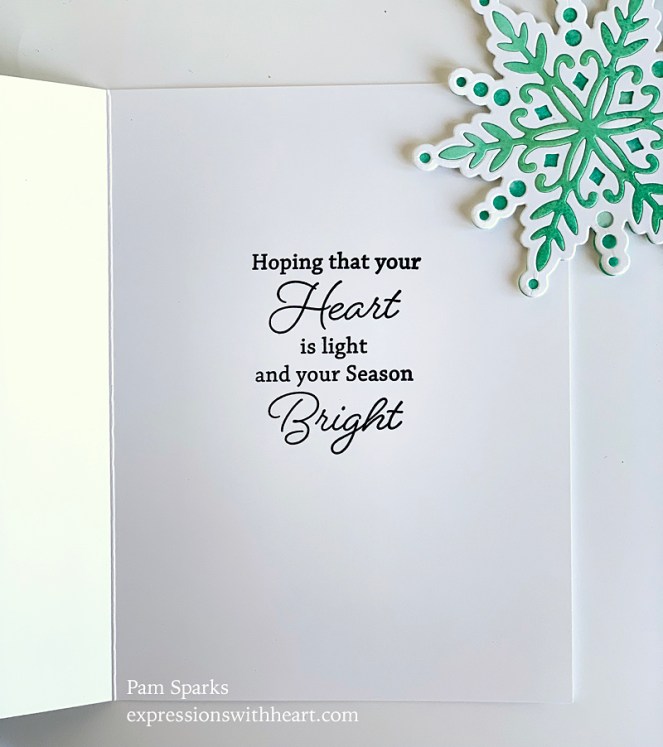 Hoping that your
Heart
is light
and your Season
Bright
Pam Sparks
expressionswithheart.com